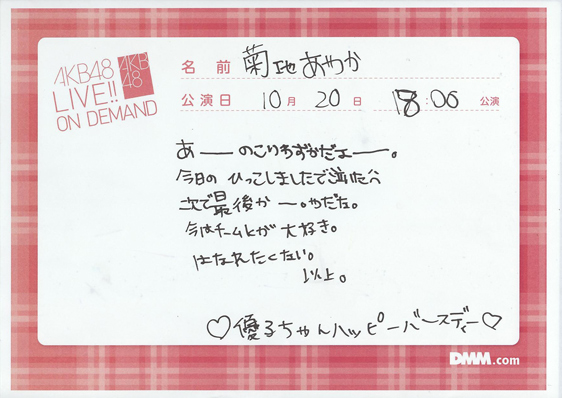 AKB48
LIVE!!
ON DEMAND
AKB
48
名前 菊地あやか
公演日 10月 20日 18:00 公演
あーのこりわずかだよー。
今日の ひっこしましたで泣いた
次で最後かー。やだな。
今はチームKが大好き。
はなれたくない。
以上。
♡優子ちゃんハッピーバースデー♡
DMM.com